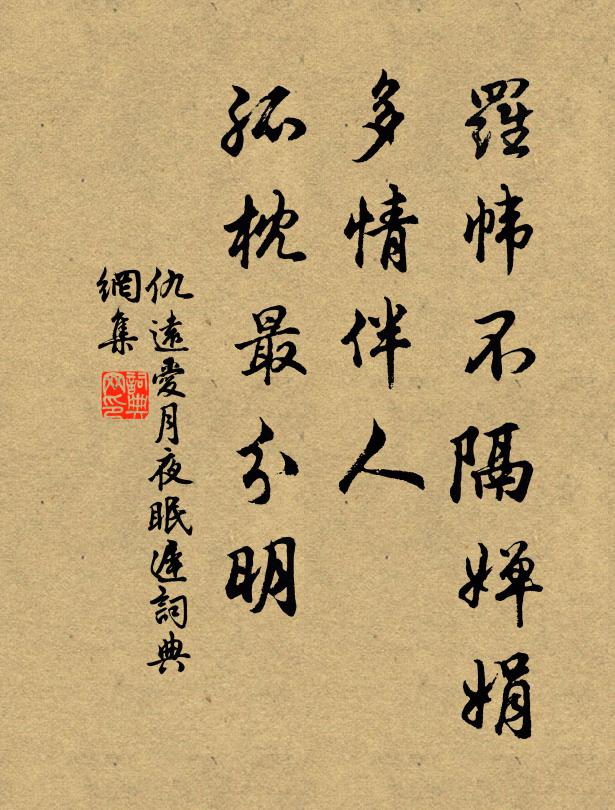 羅幃不隔嬋娟
多情伴人
孤枕最分明
仇遠愛月夜眠遲詞典
網集
詞典
网印